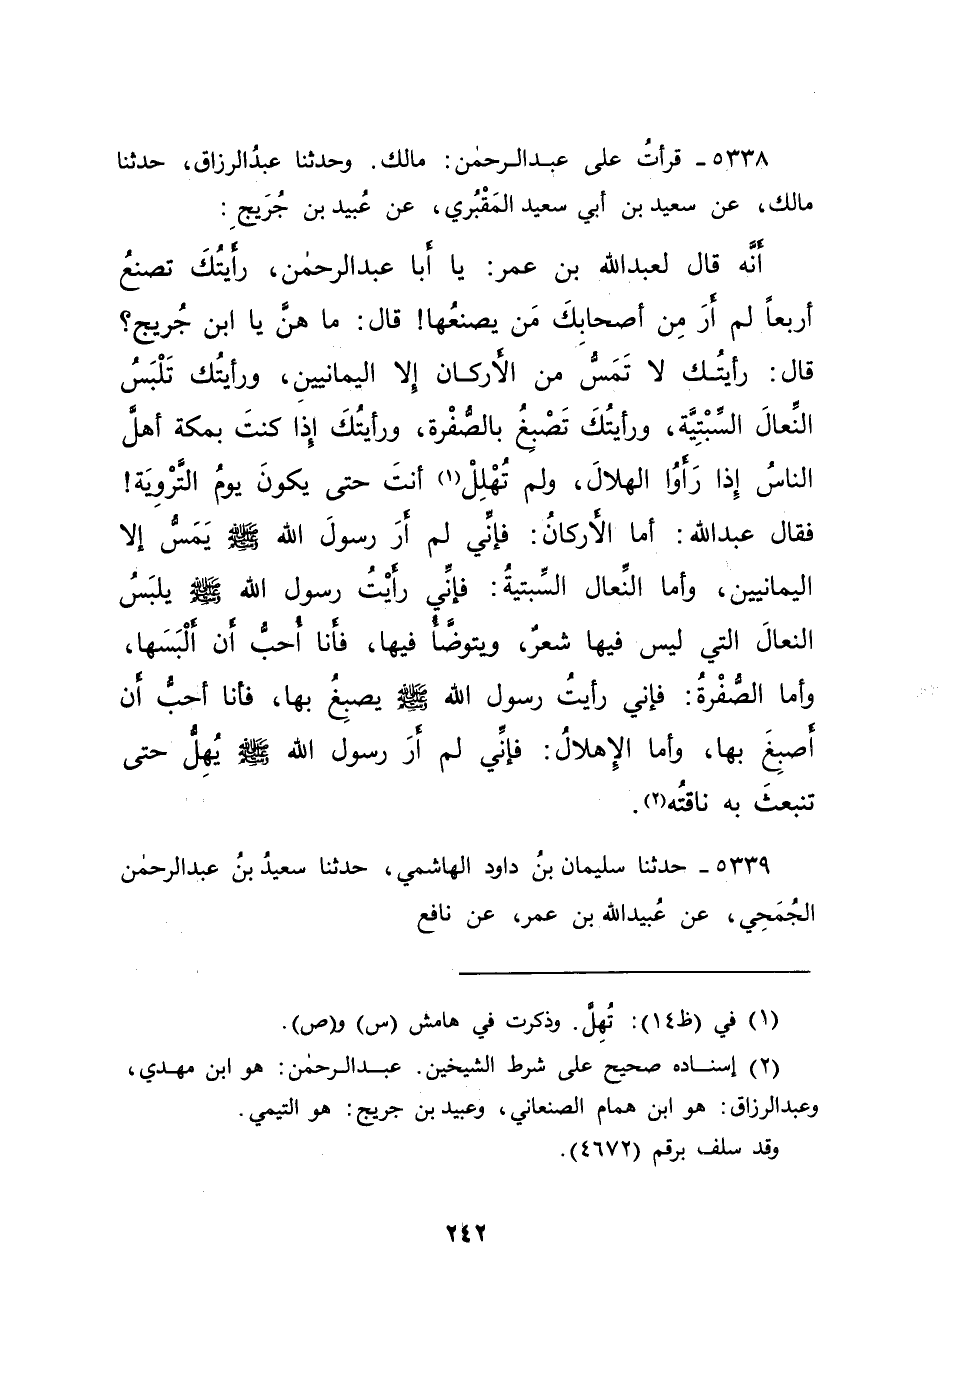 ٥٣٣٨ - قرأتُ على عبدالرحمٰن: مالك. وحدثنا عبدُالرزاق، حدثنا
مالك، عن سعيد بن أبي سعيد المَقْبُري، عن عُبيد بن جُرَيج:
أَنَّه قال لعبدالله بن عمر: يا أَبا عبدالرحمٰن، رأَيتُكَ تصنعُ
أربعاً لم أَرَ مِن أصحابِكَ مَن يصنعُها! قال: ما هنَّ يا ابن جُريج؟
قال: رأيتُك لا تَمَسُّ من الأَركان إِلا اليمانيين، ورأيتُك تَلْبَسُ
النِّعالَ السِّبْتِيَّة، ورأيتُكَ تَصْبِغُ بالصُّفْرة، ورأيتُكَ إِذا كنتَ بمكة أهلَّ
الناسُ إِذا رَأَوُا الهلالَ، ولم تُهْلِلْ(١) أنتَ حتى يكونَ يومُ التَّرْوِيَة!
فقال عبدالله: أما الأَركانُ: فإنِّي لم أَرَ رسولَ الله ﷺ يَمَسُّ إلا
اليمانيين، وأما النِّعال السِّبتيةُ: فإنِّي رأَيْتُ رسول الله ﷺ يلبَسُ
النعالَ التي ليس فيها شعرٌ، ويتوضَّأُ فيها، فأَنا أُحبُّ أَن أَلْبَسَها،
وأما الصُّفْرةُ: فإني رأيتُ رسول الله ﷺ يصبِغُ بها، فأنا أحبُّ أَن
أَصبِغَ بها، وأما الإِهلالُ: فإنِّي لم أَرَ رسول الله ﷺ يُهِلُّ حتى
تنبعثَ به ناقتُه(٢).
٥٣٣٩ - حدثنا سليمان بنُ داود الهاشمي، حدثنا سعيدُ بنُ عبدالرحمٰن
الجُمَحِي، عن عُبيدالله بن عمر، عن نافع
(١) في (ظ١٤): تُهِلَّ. وذكرت في هامش (س) و(ص).
(٢) إسناده صحيح على شرط الشيخين. عبدالرحمٰن: هو ابن مهدي،
وعبدالرزاق: هو ابن همام الصنعاني، وعبيد بن جريج: هو التيمي.
وقد سلف برقم (٤٦٧٢).
٢٤٢